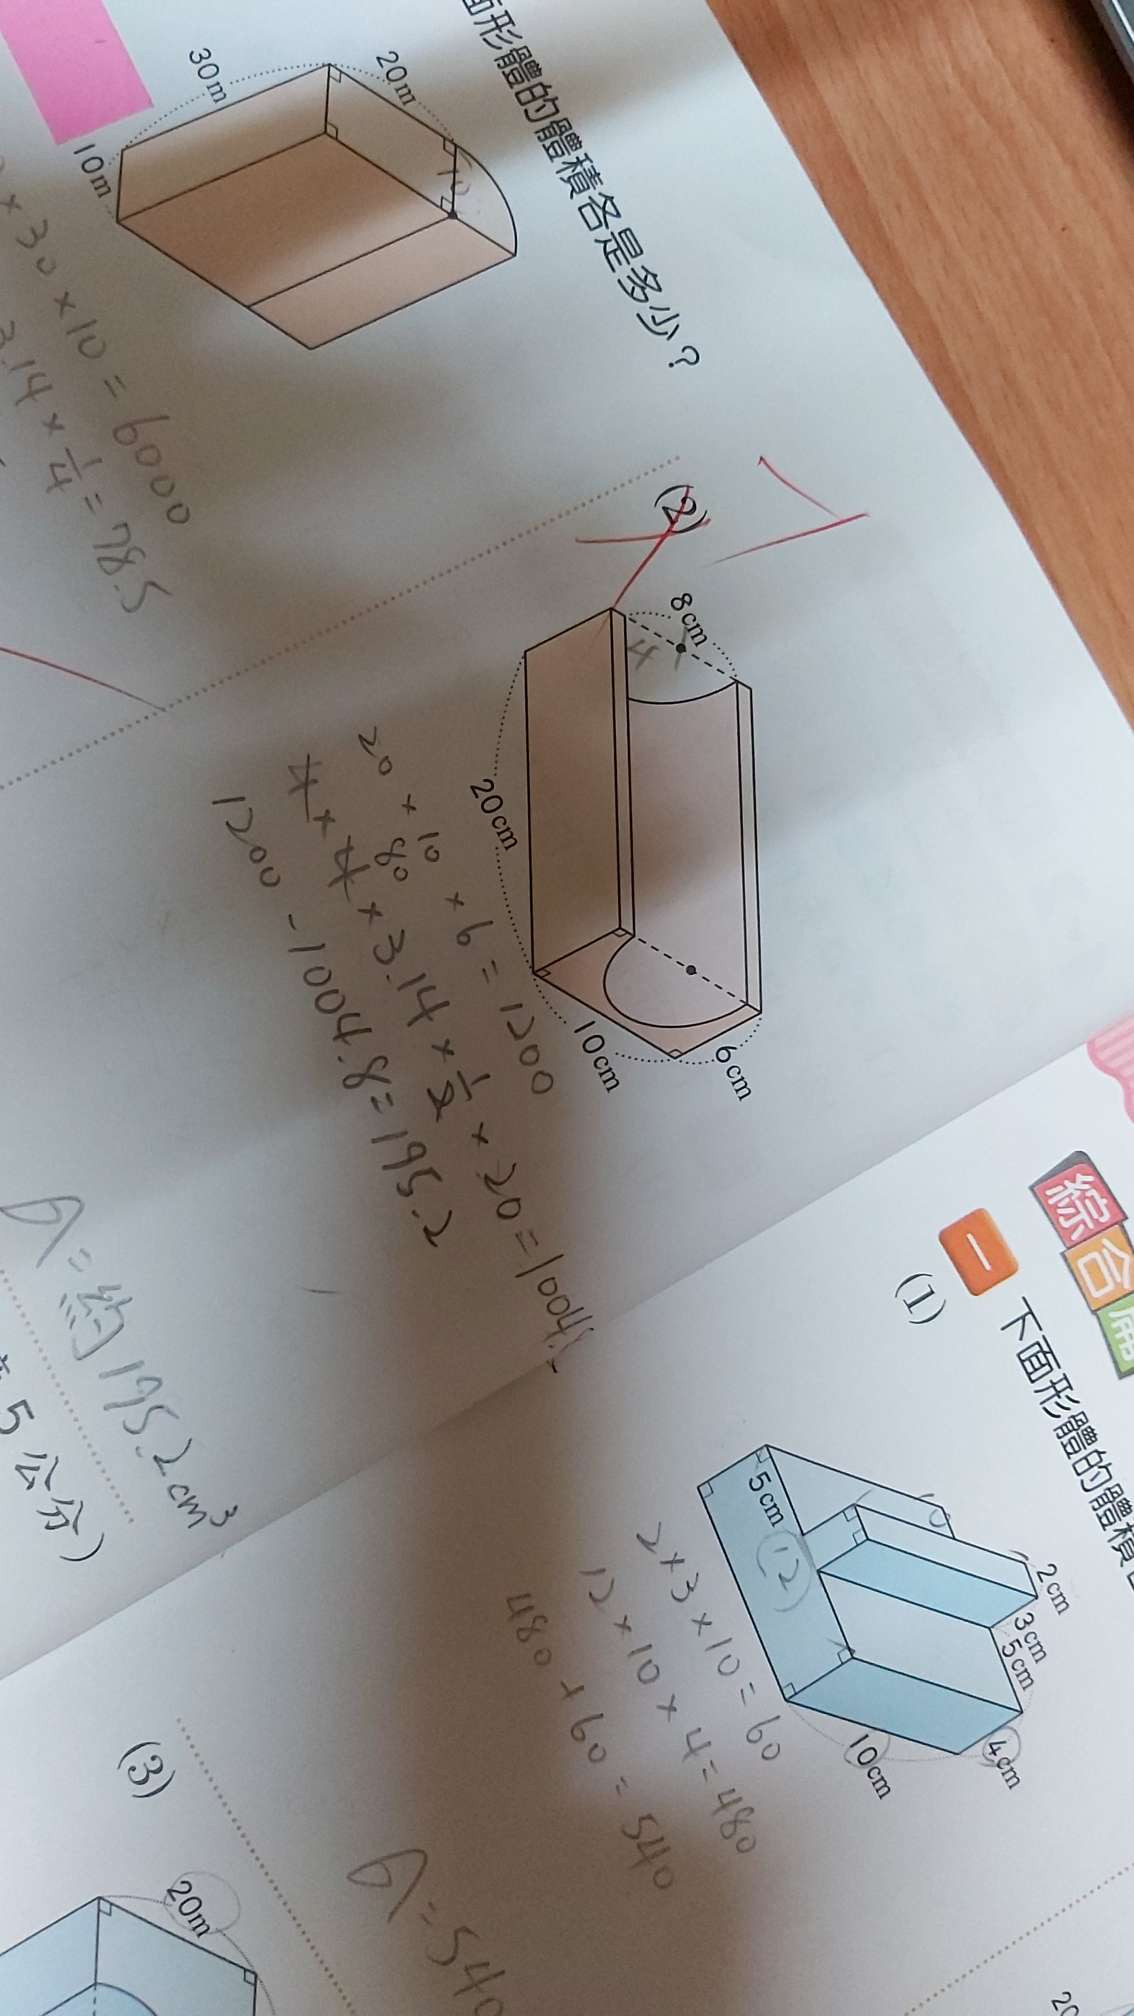 面形體的體積各是多少？
20m
30m
10m
× 30 × 10 = 6000
3.14 × 1/4 = 78.5
(2)
8cm
4
20cm
10cm
6cm
20 × 10 × 6 = 1200
80
4 × 4 × 3.14 × 1/2 × 20 = 1004.
1200 - 1004.8 = 195.2
A = 約 195.2cm³
5公分）
綜合
一 下面形體的體積
(1)
2cm
3cm
5cm
5cm
(12)
10cm
4cm
2×3×10 = 60
12×10×4 = 480
480 + 60 = 540
A = 540
(3)
20m
20